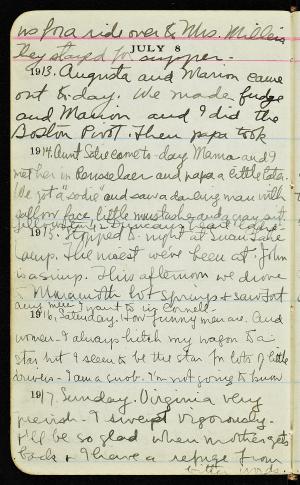 us for a ride over to Mrs. Millers
They stayed for supper.
JULY 8
1913. Augusta and Marion came
out to-day. We made fudge
and Marion and I did the
Boston Pivot. Then papa took
1914. Aunt Sadie came to-day. Mama and I
met her in Rensselaer and papa a little later.
We got a "sodie" and saw a darling man with
sallow face, little mustache and a gray suit
1915. Stopped to-night at Swan Lake
Camp. The nicest we've been at. John
is a simp. This afternoon we drove
to Mammoth hot springs & saw Fort
1916. Saturday. How funny men are. And
women. I always hitch my wagon to a
star but I seem to be the star for lots of little
drivers - I am a snob. I'm not going to be
1917. Sunday. Virginia very
peevish. I swept vigorously.
I'll be so glad when mother gets
back & I have a refuge from